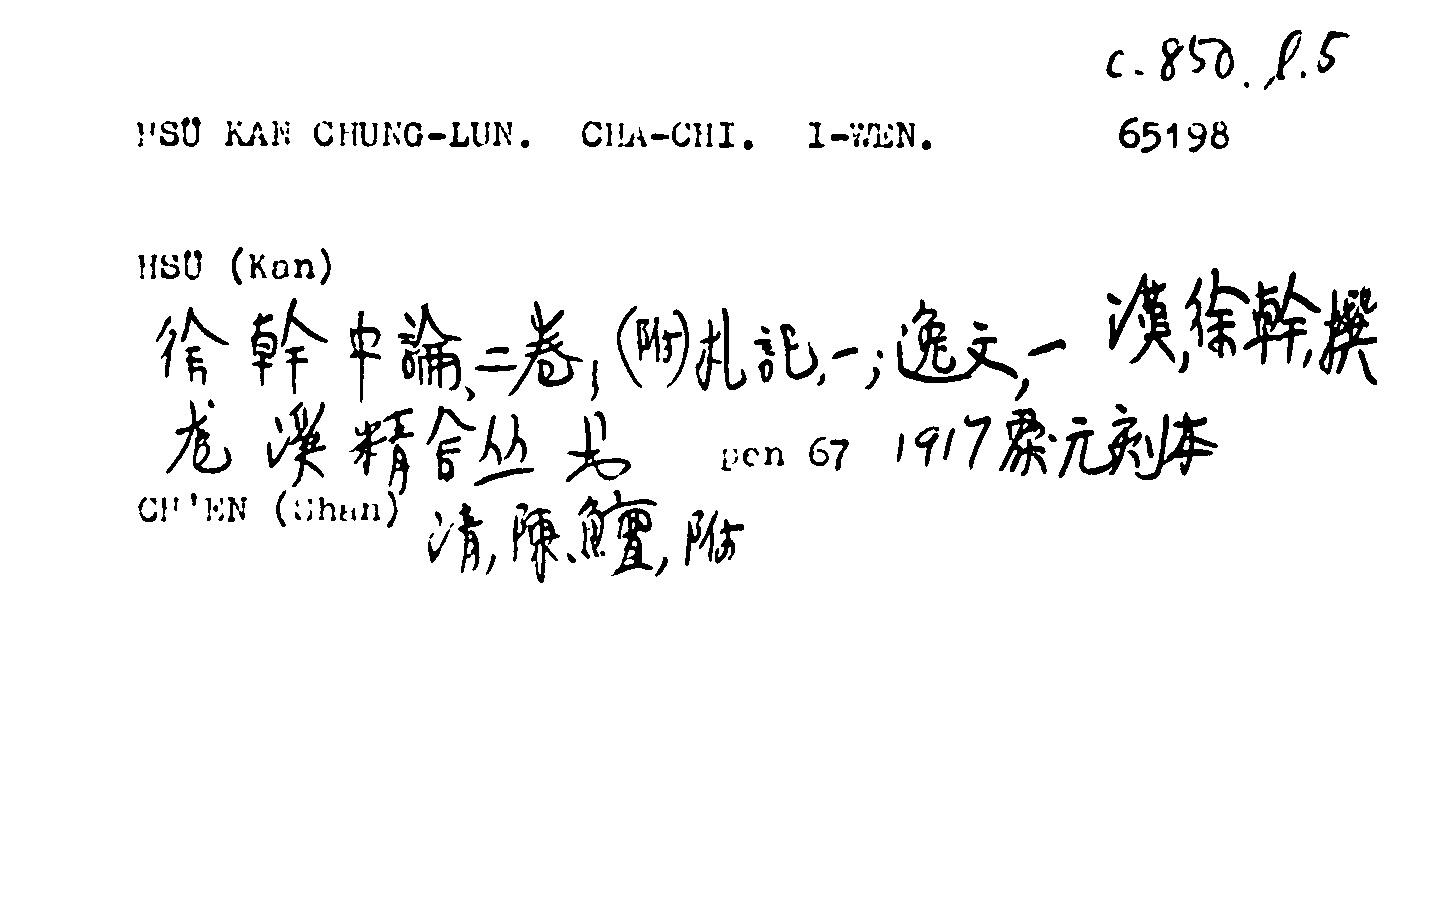 c.850.l.5
HSÜ KAN CHUNG-LUN. CHA-CHI. I-WEN. 65198
HSÜ (Kan)
徐幹中論、二卷; (附)札記,一; 逸文,一 漢,徐幹,撰
龙溪精舍丛书 pen 67 1917 覆元刻本
CH'EN (Shan) 清,陳鱣,附